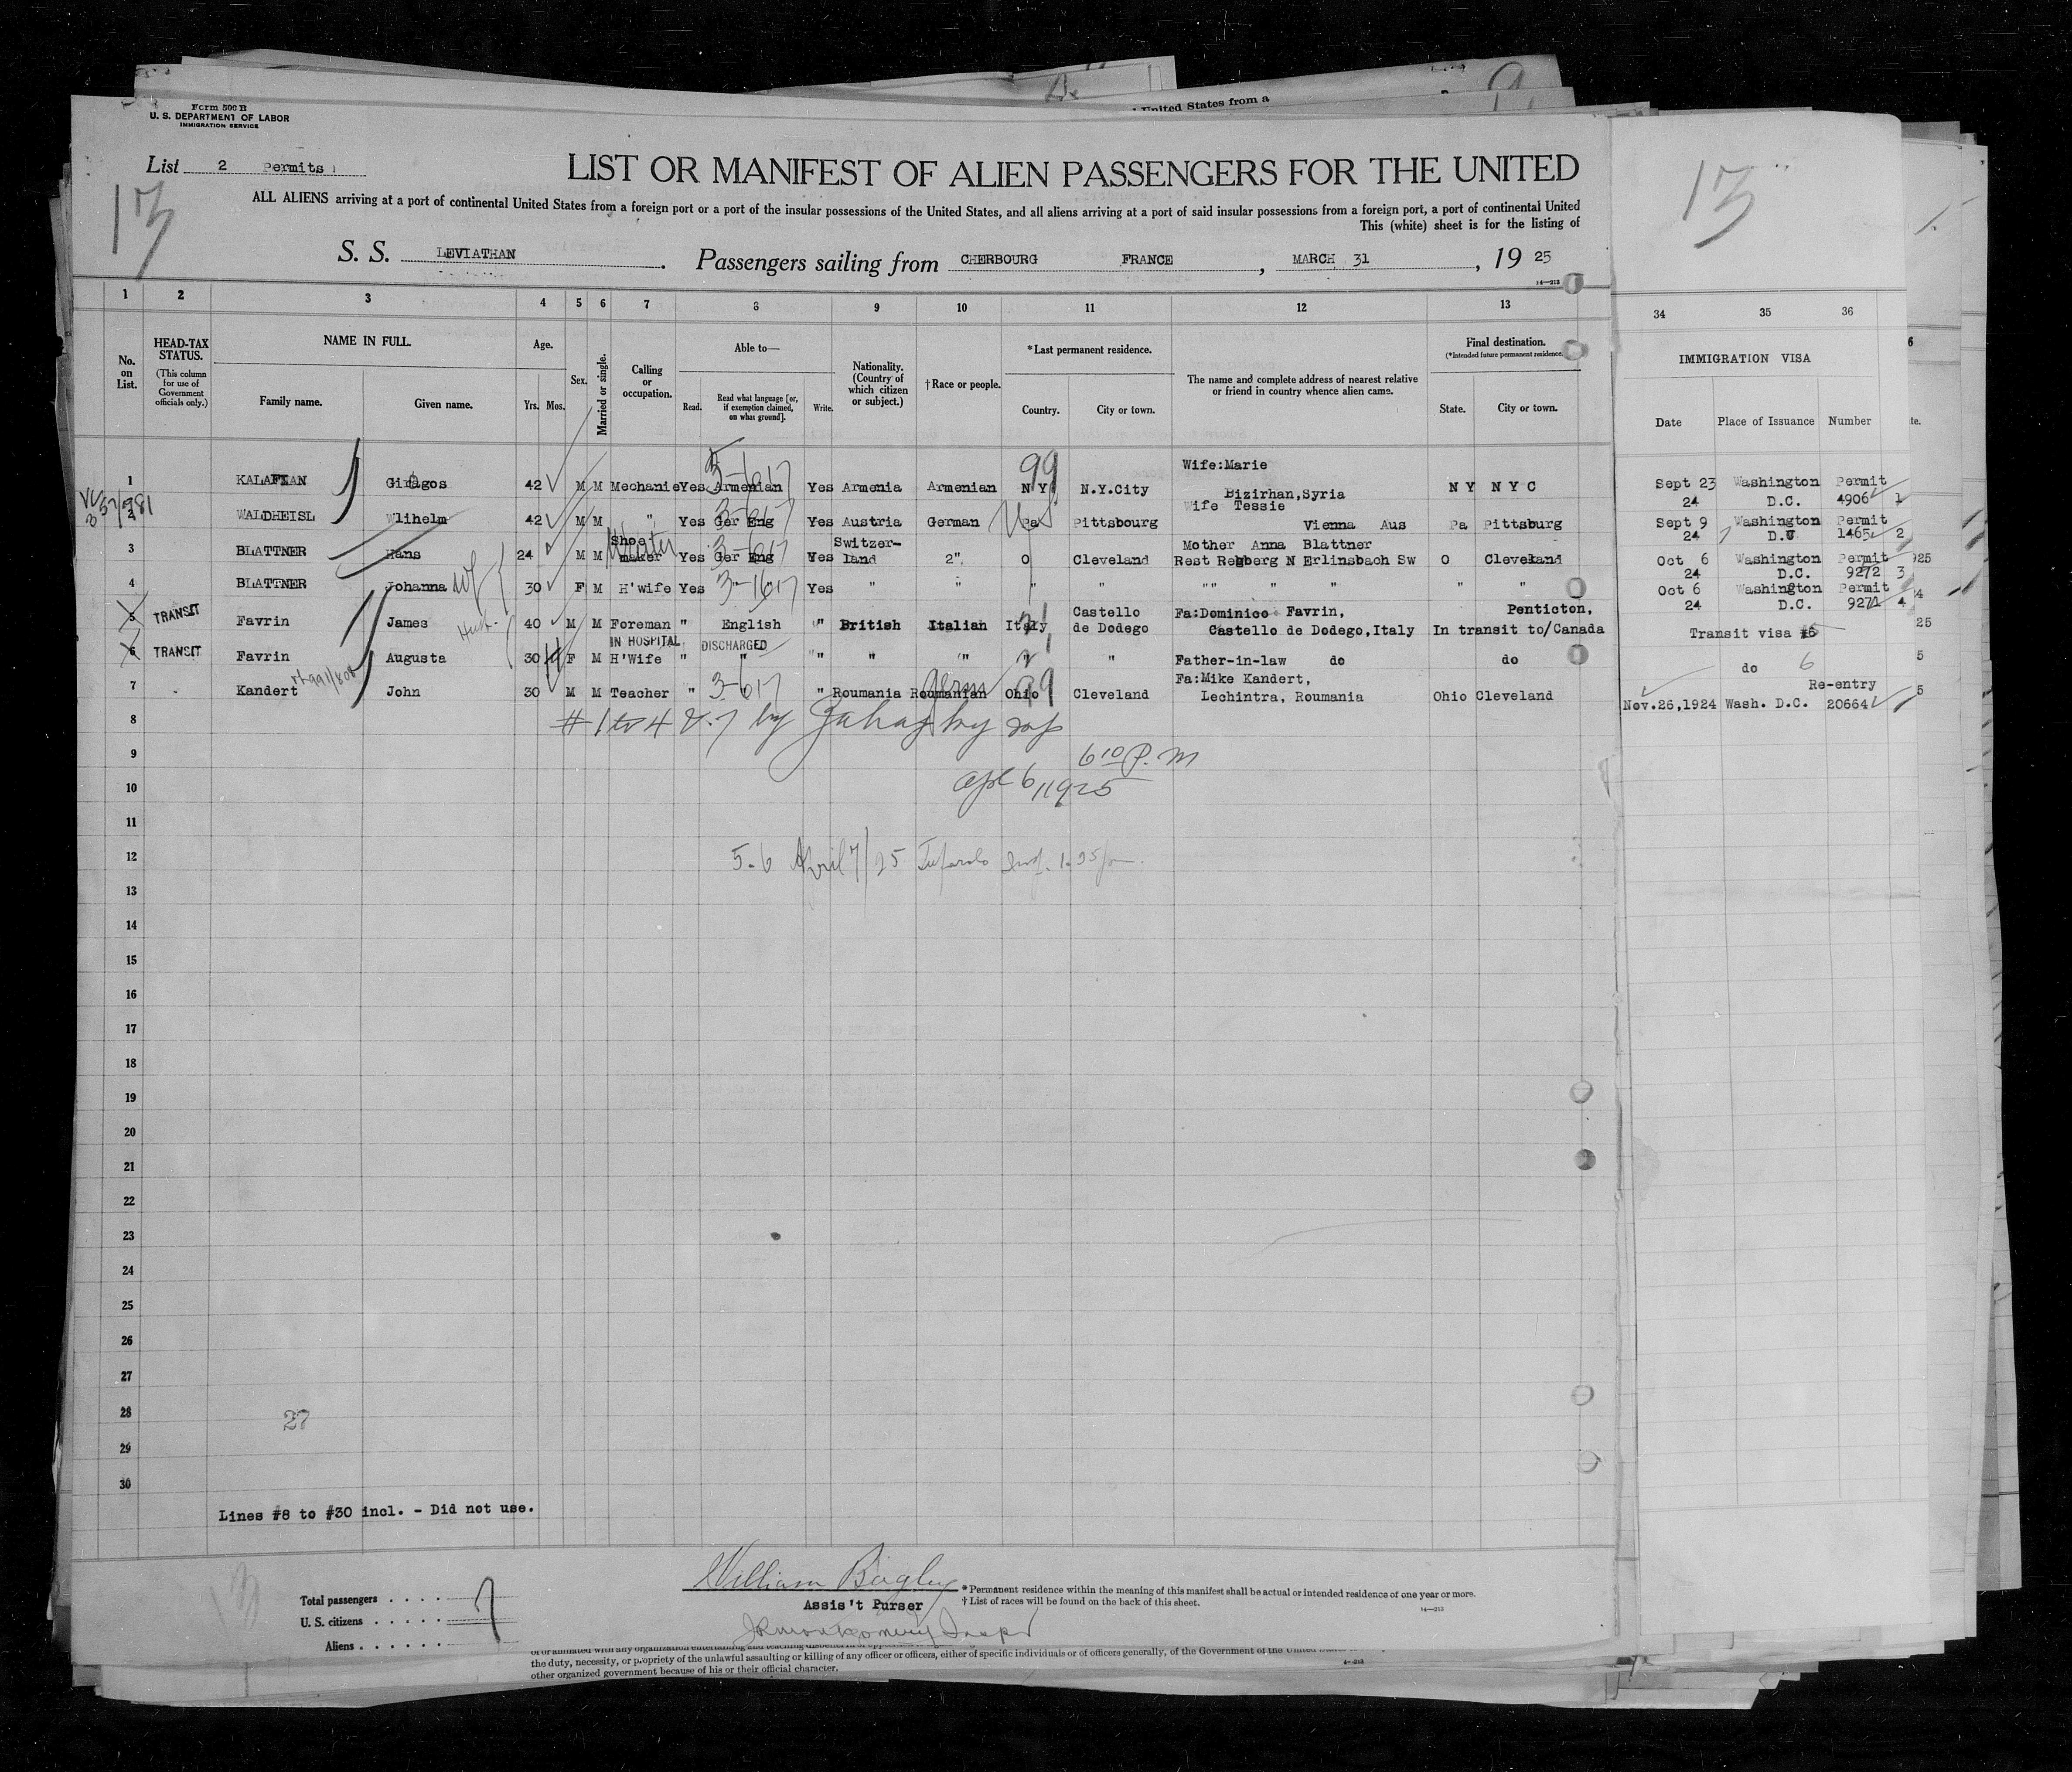 United States from a
Form 500 B
U. S. DEPARTMENT OF LABOR
IMMIGRATION SERVICE
List 2 Permits
LIST OR MANIFEST OF ALIEN PASSENGERS FOR THE UNITED
13
13
ALL ALIENS arriving at a port of continental United States from a foreign port or a port of the insular possessions of the United States, and all aliens arriving at a port of said insular possessions from a foreign port, a port of continental United
This (white) sheet is for the listing of
S. S. LEVIATHAN. Passengers sailing from CHERBOURG FRANCE, MARCH 31, 1925
14—213
1 2 3 4 5 6 7 8 9 10 11 12 13 34 35 36
No. on List.
HEAD-TAX STATUS.
(This column for use of Government officials only.)
NAME IN FULL.
Family name. Given name.
Age.
Yrs. Mos.
Sex.
Married or single.
Calling or occupation.
Able to—
Read. Read what language [or, if exemption claimed, on what ground]. Write.
Nationality. (Country of which citizen or subject.)
†Race or people.
*Last permanent residence.
Country. City or town.
The name and complete address of nearest relative or friend in country whence alien came.
Final destination.
(*Intended future permanent residence.)
State. City or town.
IMMIGRATION VISA
Date Place of Issuance Number
Wife:Marie
1 KALAFIAN Giragos 42 M M Mechanic Yes Armenian Yes Armenia Armenian N Y N.Y.City Bizirhan,Syria N Y N Y C Sept 23 24 Washington D.C. Permit 4906 1
Wife Tessie
2 WALDHEISL Wlihelm 42 M M " Yes Ger Eng Yes Austria German Pa Pittsbourg Vienna Aus Pa Pittsburg Sept 9 24 Washington D.C Permit 1465 2
Mother Anna Blattner
3 BLATTNER Hans 24 M M Shoe maker Yes Ger Eng Yes Switzer- land 2". O Cleveland Rest Regberg N Erlinsbach Sw O Cleveland Oct 6 24 Washington D.C. Permit 9272 3
4 BLATTNER Johanna 30 F M H'wife Yes " Yes " " " " "" " " " " Oct 6 24 Washington D.C. Permit 9271 4
5 TRANSIT Favrin James 40 M M Foreman " English " British Italian Italy Castello de Dodego Fa:Dominico Favrin, Castello de Dodego,Italy In transit to/Canada Penticton, Transit visa 5
IN HOSPITAL DISCHARGED
6 TRANSIT Favrin Augusta 30 F M H'Wife " " " " " " " Father-in-law do do do 6
7 Kandert John 30 M M Teacher " " Roumania Roumanian Ohio Cleveland Fa:Mike Kandert, Lechintra, Roumania Ohio Cleveland Nov.26,1924 Wash. D.C. Re-entry 20664
8
9
6 10 P.M
10
11
12
13
14
15
16
17
18
19
20
21
22
23
24
25
26
27
28
27
29
30
Lines #8 to #30 incl. - Did not use.
William Bagley
Assis't Purser
Total passengers
U. S. citizens
Aliens
7
*Permanent residence within the meaning of this manifest shall be actual or intended residence of one year or more.
†List of races will be found on the back of this sheet.
14—213
the duty, necessity, or propriety of the unlawful assaulting or killing of any officer or officers, either of specific individuals or of officers generally, of the Government of the United
other organized government because of his or their official character.